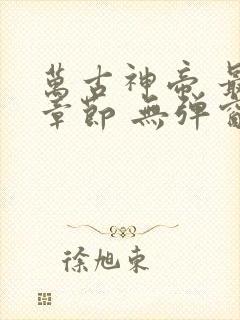 萬古神帝 最
章節 無彈窗
徐旭東